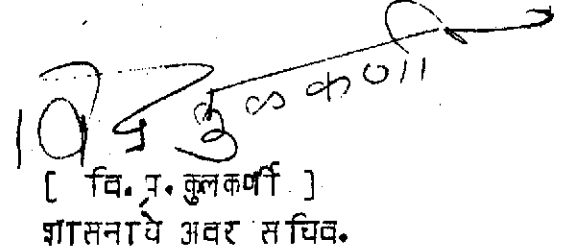 वि प्र कुळकर्णी
[ वि. प्र. कुलकर्णी ]
शासनाचे अवर सचिव.